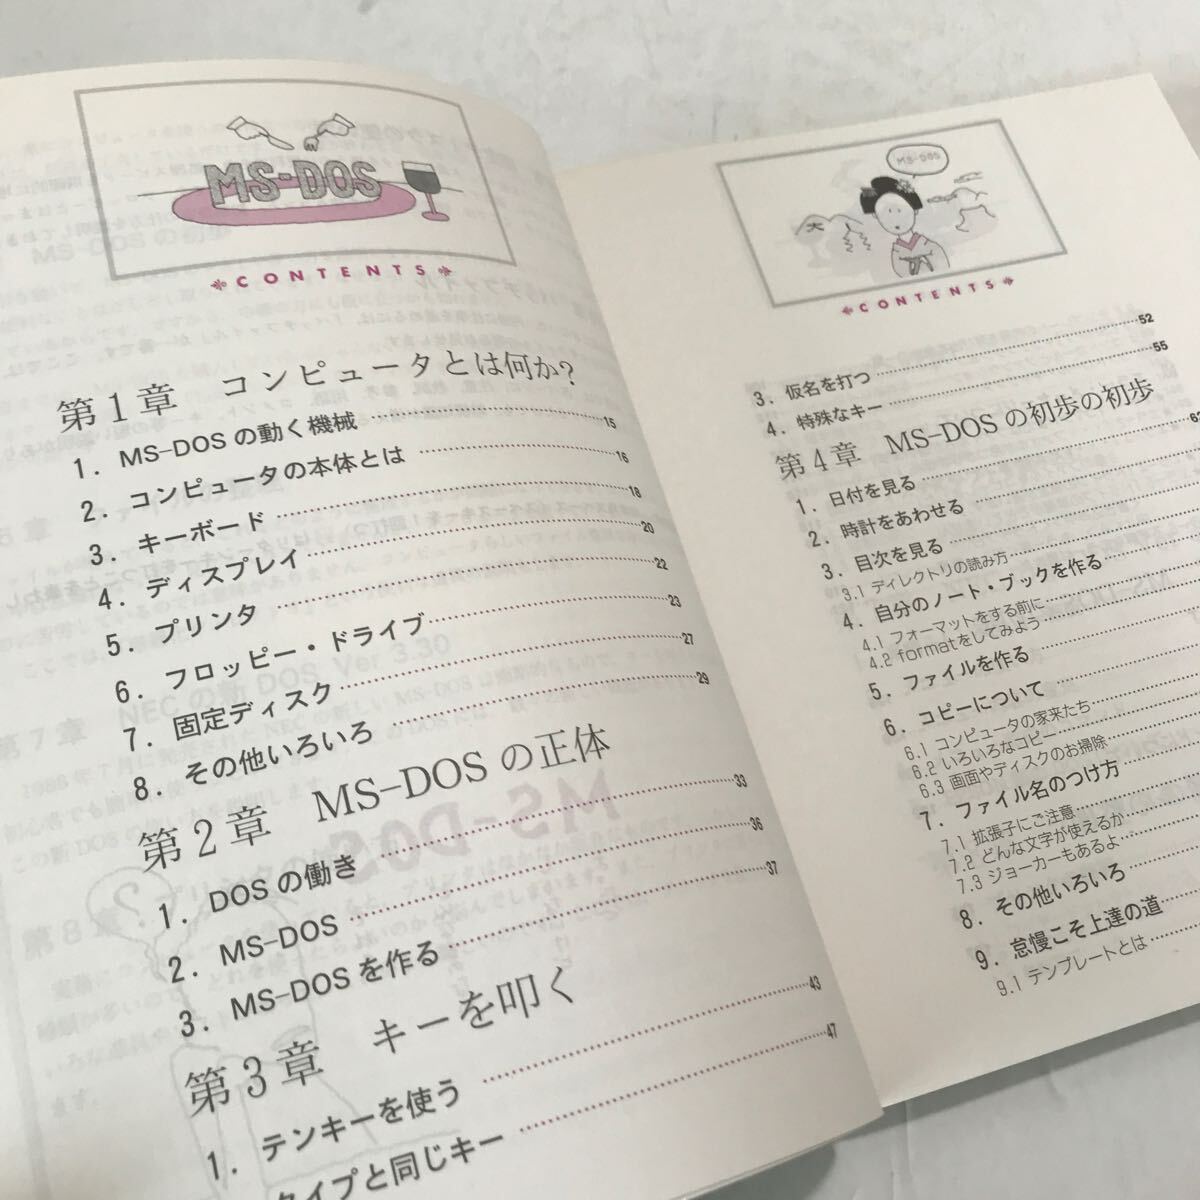 MS-DOS
CONTENTS
第1章 コンピュータとは何か?
1. MS-DOSの動く機械 15
2. コンピュータの本体とは 16
3. キーボード 18
4. ディスプレイ 20
5. プリンタ 22
6. フロッピー・ドライブ 23
7. 固定ディスク 27
8. その他いろいろ 29
第2章 MS-DOSの正体
1. DOSの働き 33
2. MS-DOS 36
3. MS-DOSを作る 37
第3章 キーを叩く
1. テンキーを使う 43
タイプと同じキー 47
MS-DOS
CONTENTS
3. 仮名を打つ 52
4. 特殊なキー 55
第4章 MS-DOSの初歩の初歩
1. 日付を見る
2. 時計をあわせる
3. 目次を見る
3.1 ディレクトリの読み方
4. 自分のノート・ブックを作る
4.1 フォーマットをする前に
4.2 formatをしてみよう
5. ファイルを作る
6. コピーについて
6.1 コンピュータの家来たち
6.2 いろいろなコピー
6.3 画面やディスクのお掃除
7. ファイル名のつけ方
7.1 拡張子にご注意
7.2 どんな文字が使えるか
7.3 ジョーカーもあるよ
8. その他いろいろ
9. 怠慢こそ上達の道
9.1 テンプレートとは